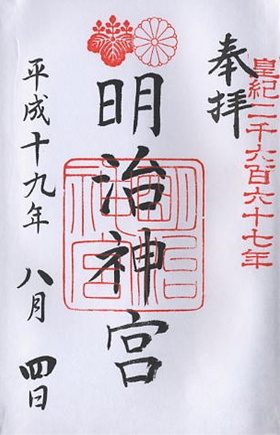 皇紀二千六百六十七年
奉拝
明治神宮
明治神宮
平成十九年 八月 四日